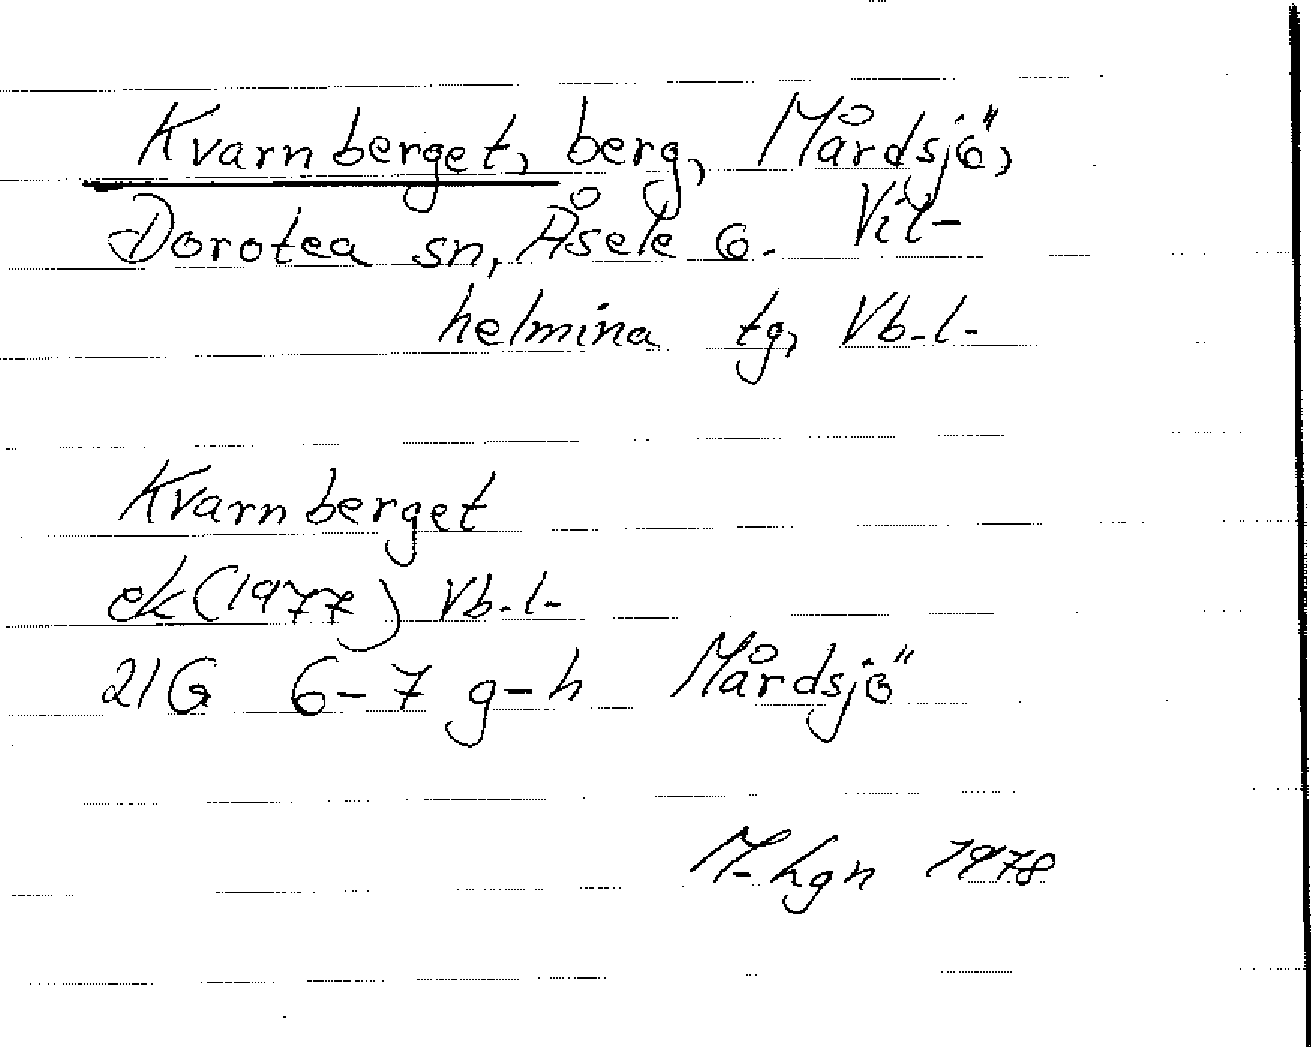 Kvarnberget, berg, Mårdsjö,
Dorotea sn, Åsele o. Vil-
helmina tg, Vb-l-
Kvarnberget
ek (1977) Vb-l-
21G 6-7 g-h Mårdsjö
M-hgn 1978